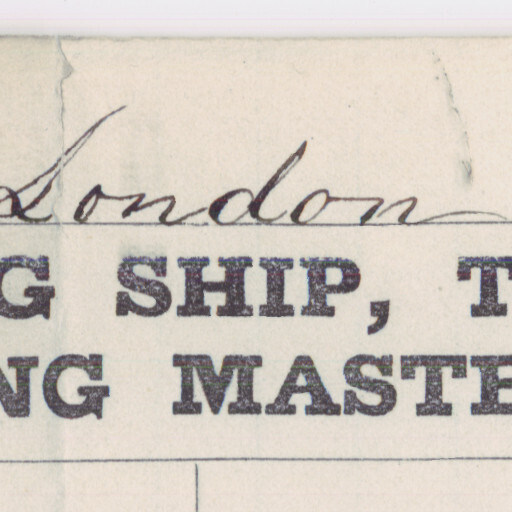 London
G SHIP, T
NG MASTE